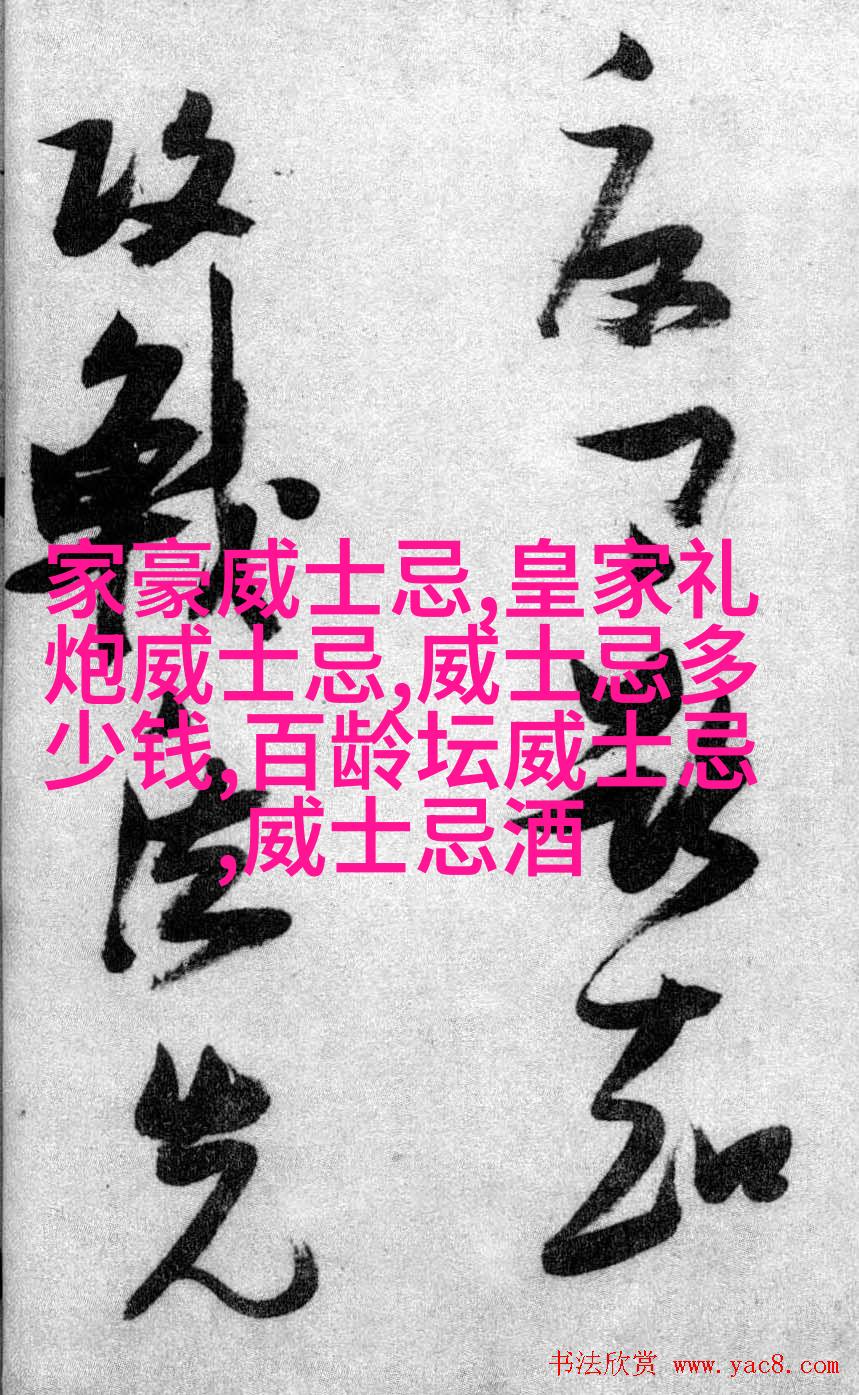 家豪威士忌,皇家礼
炮威士忌,威士忌多
少钱,百龄坛威士忌
,威士忌酒
攻戰法先
书法欣赏 www.yac8.com